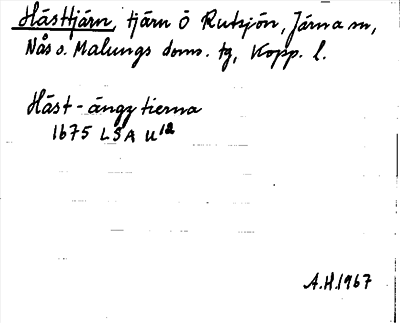 Hästtjärn, tjärn ö Rutsjön, Järna sn,
Nås o. Malungs doms. tg, Kopp. l.
Häst-ängz tierna
1675 LSA U 12
A.H. 1967